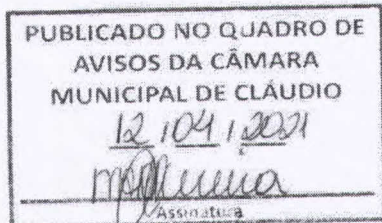 PUBLICADO NO QUADRO DE
AVISOS DA CÂMARA
MUNICIPAL DE CLÁUDIO
12 / 04 / 2021
Assinatura